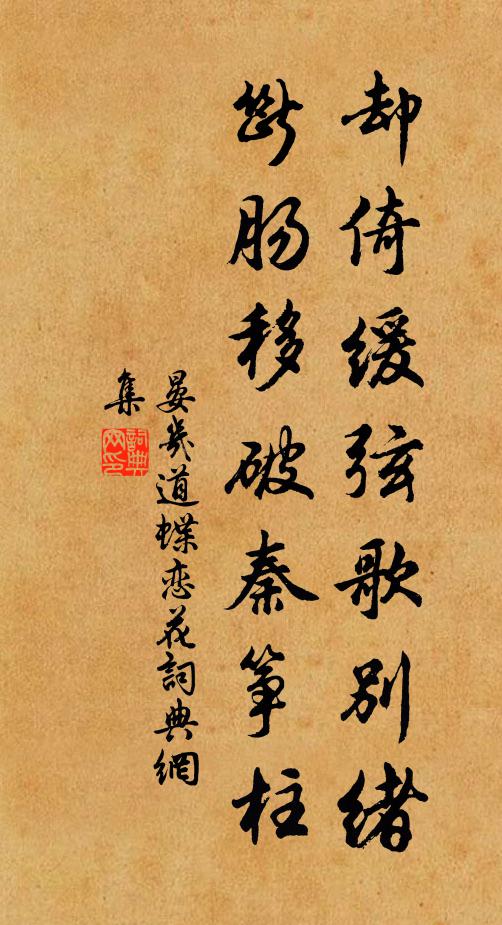 却倚缓弦歌别绪
断肠移破秦筝柱
晏几道蝶恋花詞典網
集
詞典网印